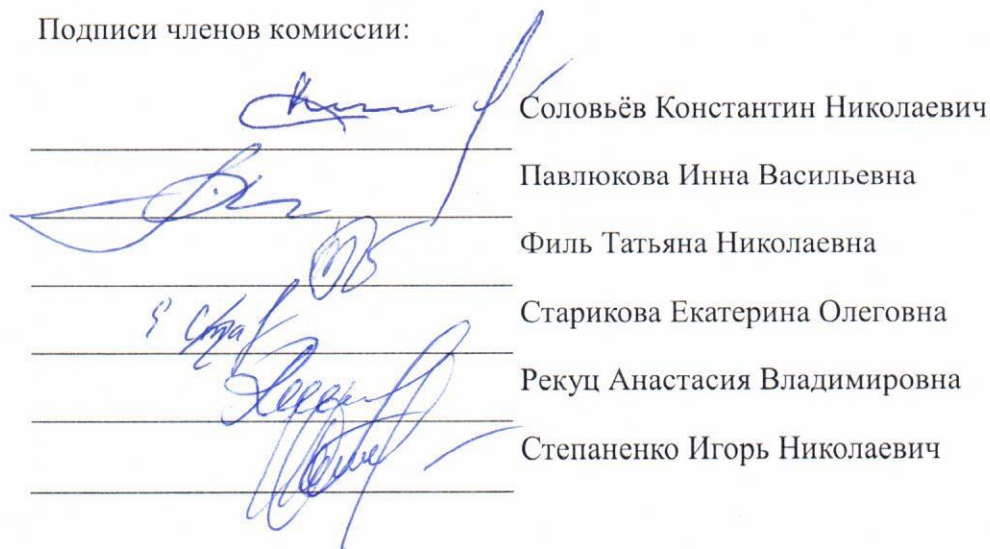 Подписи членов комиссии:
Соловьёв Константин Николаевич
Павлюкова Инна Васильевна
Филь Татьяна Николаевна
Старикова Екатерина Олеговна
Рекуц Анастасия Владимировна
Степаненко Игорь Николаевич